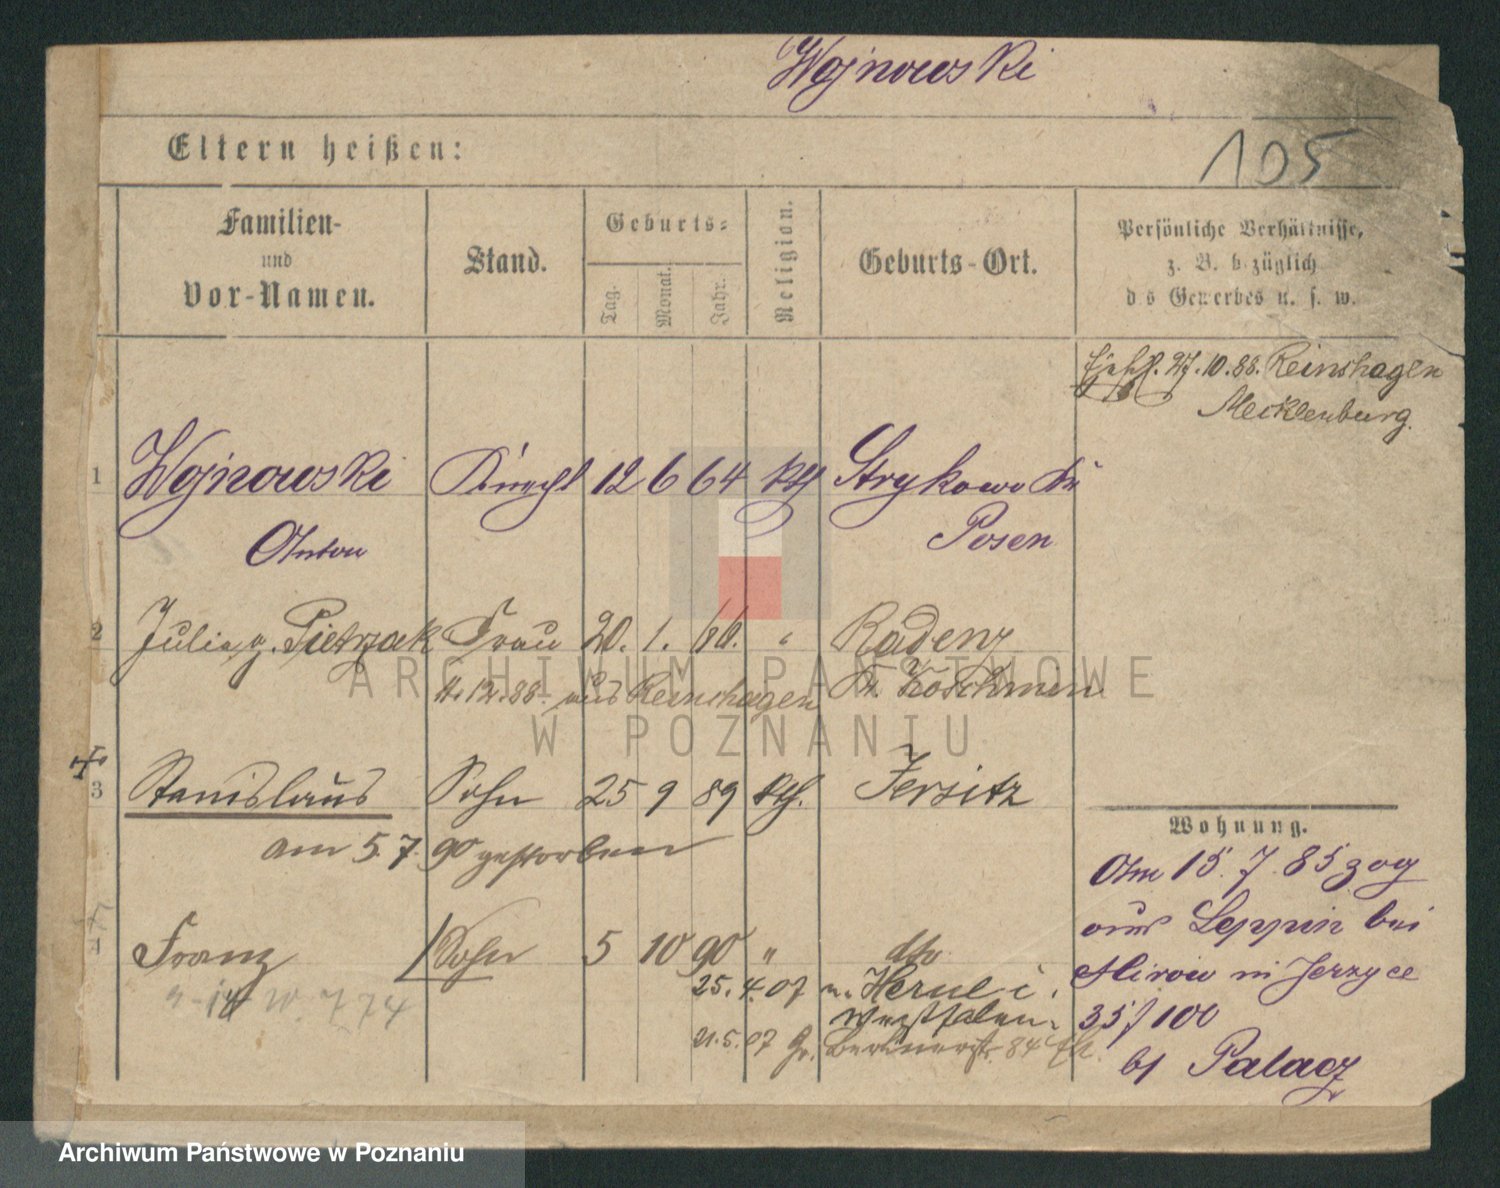 Wojnowski
Eltern heißen:
105
Familien-
und
Vor-Namen.
Stand.
Geburts-
Tag.
Monat.
Jahr.
Religion.
Geburts-Ort.
Persönliche Verhältnisse,
z. B. bezüglich
des Gewerbes u. s. w.
27.10.88. Reinshagen
Mecklenburg.
1 Wojnowski Knecht 12 6 64 kth Strykowo Kr
Anton Posen
2 Julie g. Pietrzak Frau 20. 1. "  Radenz
4.12.88. aus Reinshagen Kr. Koschmin
3 Stanislaus Sohn 25 9 89 kth. Jersitz
am 5.7.90 gestorben
Wohnung.
Am 15.7.85 zog
aus Leppin bei
Mirow in Jerzyce
4 Franz Sohn 5 10 90 " dto
25.4.07 n. Herne i.
Westfalen.
21.5.07 Berlinerstr. 84
bei Palacz
ARCHIWUM PAŃSTWOWE
W POZNANIU
Archiwum Państwowe w Poznaniu